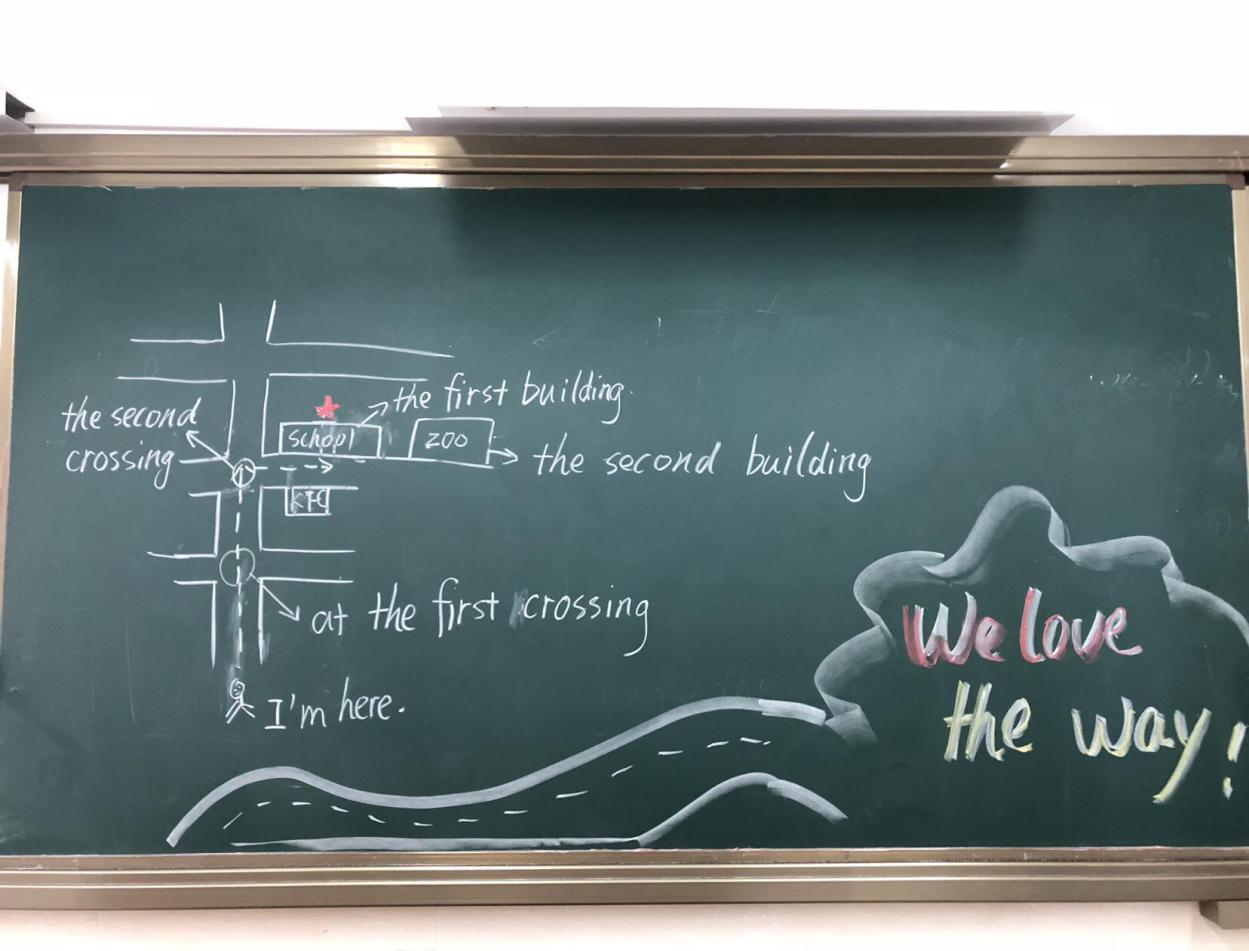 the first building.
the second
crossing
school
zoo
the second building
KFC
at the first crossing
I'm here.
We love
the way!